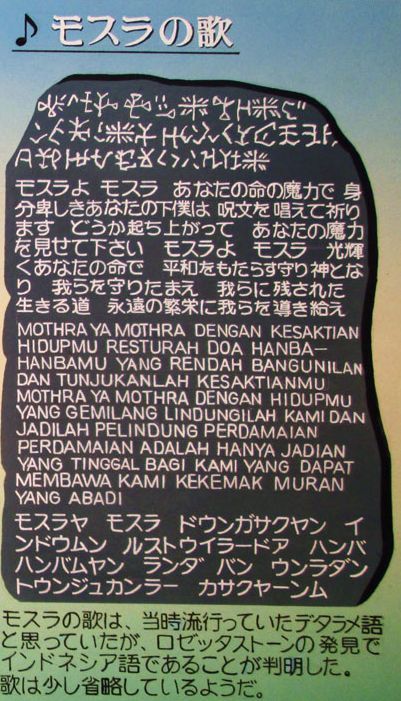 ♪ モスラの歌
モスラよ モスラ あなたの命の魔力で 身
分卑しきあなたの下僕は 呪文を唱えて祈り
ます どうか起ち上がって あなたの魔力
を見せて下さい モスラよ モスラ 光輝
くあなたの命で 平和をもたらす守り神とな
り 我らを守りたまえ 我らに残された
生きる道 永遠の繁栄に我らを導き給え
MOTHRA YA MOTHRA DENGAN KESAKTIAN
HIDUPMU RESTURAH DOA HANBA-
HANBAMU YANG RENDAH BANGUNILAN
DAN TUNJUKANLAH KESAKTIANMU
MOTHRA YA MOTHRA DENGAN HIDUPMU
YANG GEMILANG LINDUNGILAH KAMI DAN
JADILAH PELINDUNG PERDAMAIAN
PERDAMAIAN ADALAH HANYA JADIAN
YANG TINGGAL BAGI KAMI YANG DAPAT
MEMBAWA KAMI KEKEMAK MURAN
YANG ABADI
モスラヤ モスラ ドウンガサクヤン イ
ンドウムン ルストウイラードア ハンバ
ハンバムヤン ランダ バン ウンラダン
トウンジュカンラー カサクヤーンム
モスラの歌は、当時流行っていたデタラメ語
と思っていたが、ロゼッタストーンの発見で
インドネシア語であることが判明した。
歌は少し省略しているようだ。